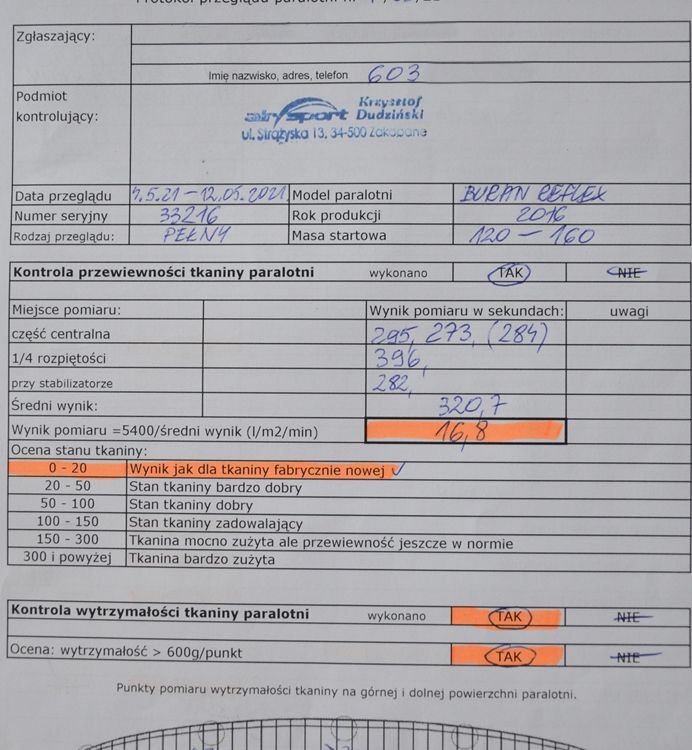 Protokół przeglądu paralotni nr
Zgłaszający:
Imię nazwisko, adres, telefon 603
Podmiot kontrolujący:
airsport Krzysztof Dudziński
ul. Strążyska 13, 34-500 Zakopane
Data przeglądu 4.5.21 - 12.05.2021 Model paralotni BURAN REFLEX
Numer seryjny 33216 Rok produkcji 2016
Rodzaj przeglądu: PEŁNY Masa startowa 120 - 160
Kontrola przewiewności tkaniny paralotni wykonano TAK NIE
Miejsce pomiaru: Wynik pomiaru w sekundach: uwagi
część centralna 295, 273, (284)
1/4 rozpiętości 396,
przy stabilizatorze 282,
Średni wynik: 320,7
Wynik pomiaru =5400/średni wynik (l/m2/min) 16,8
Ocena stanu tkaniny:
0 - 20 Wynik jak dla tkaniny fabrycznie nowej ✓
20 - 50 Stan tkaniny bardzo dobry
50 - 100 Stan tkaniny dobry
100 - 150 Stan tkaniny zadowalający
150 - 300 Tkanina mocno zużyta ale przewiewność jeszcze w normie
300 i powyżej Tkanina bardzo zużyta
Kontrola wytrzymałości tkaniny paralotni wykonano TAK NIE
Ocena: wytrzymałość > 600g/punkt TAK NIE
Punkty pomiaru wytrzymałości tkaniny na górnej i dolnej powierzchni paralotni.